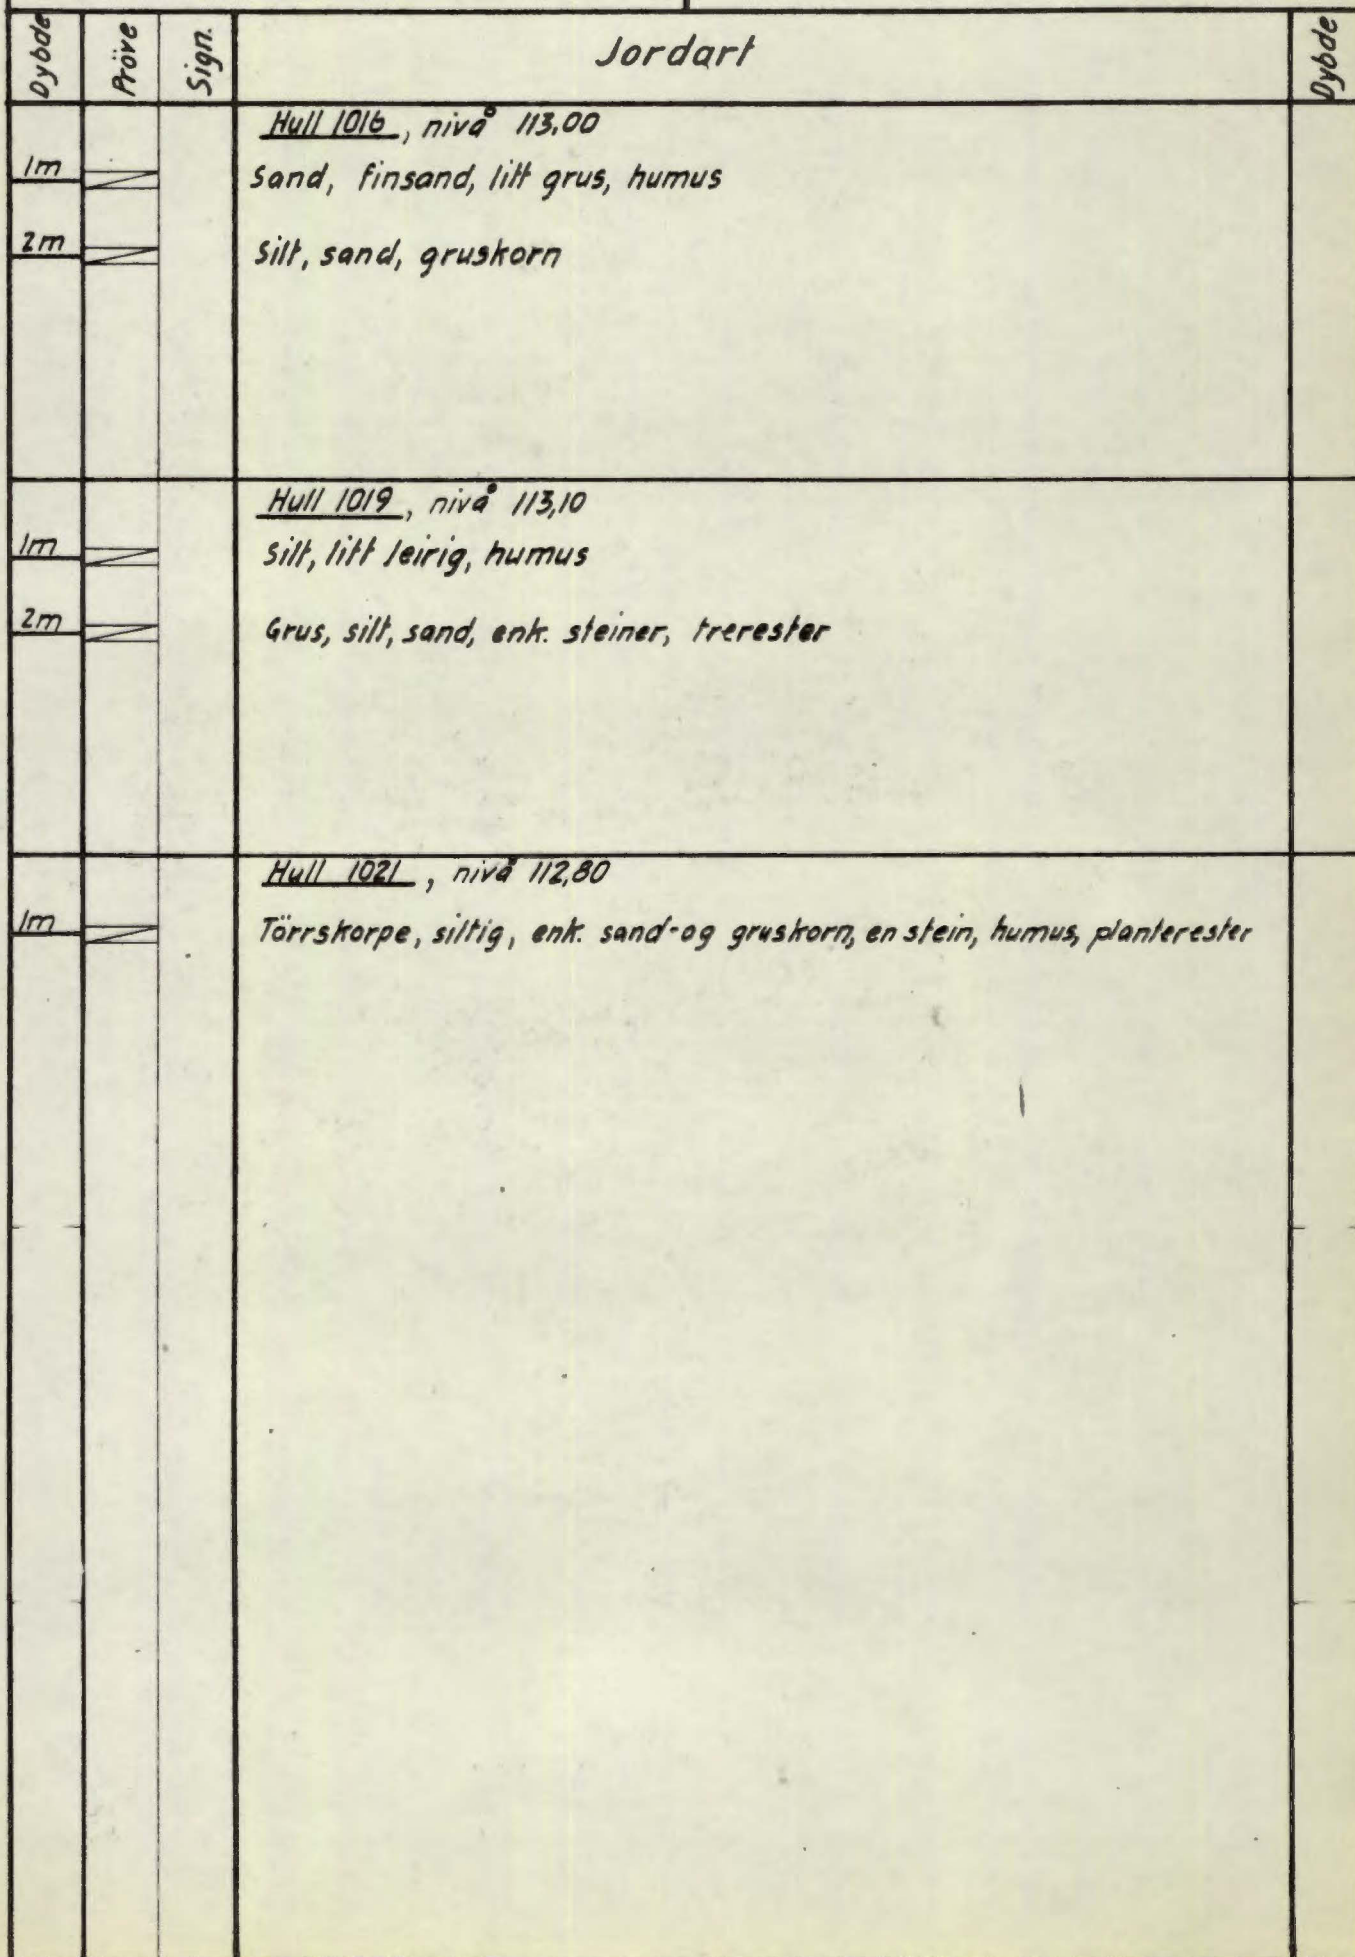 Dybde Pröve Sign. Jordart Dybde
Hull 1016, nivå 113,00
1m Sand, finsand, litt grus, humus
2m Silt, sand, gruskorn
Hull 1019, nivå 113,10
1m Silt, litt leirig, humus
2m Grus, silt, sand, enk. steiner, trerester
Hull 1021, nivå 112,80
1m Törrskorpe, siltig, enk. sand-og gruskorn, en stein, humus, planterester